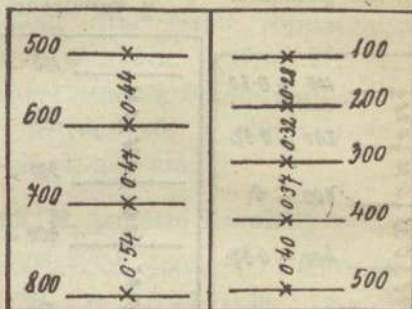 500
0·44
600
0·47
700
0·54
800
100
0·28
200
0·32
300
0·37
400
0·40
500